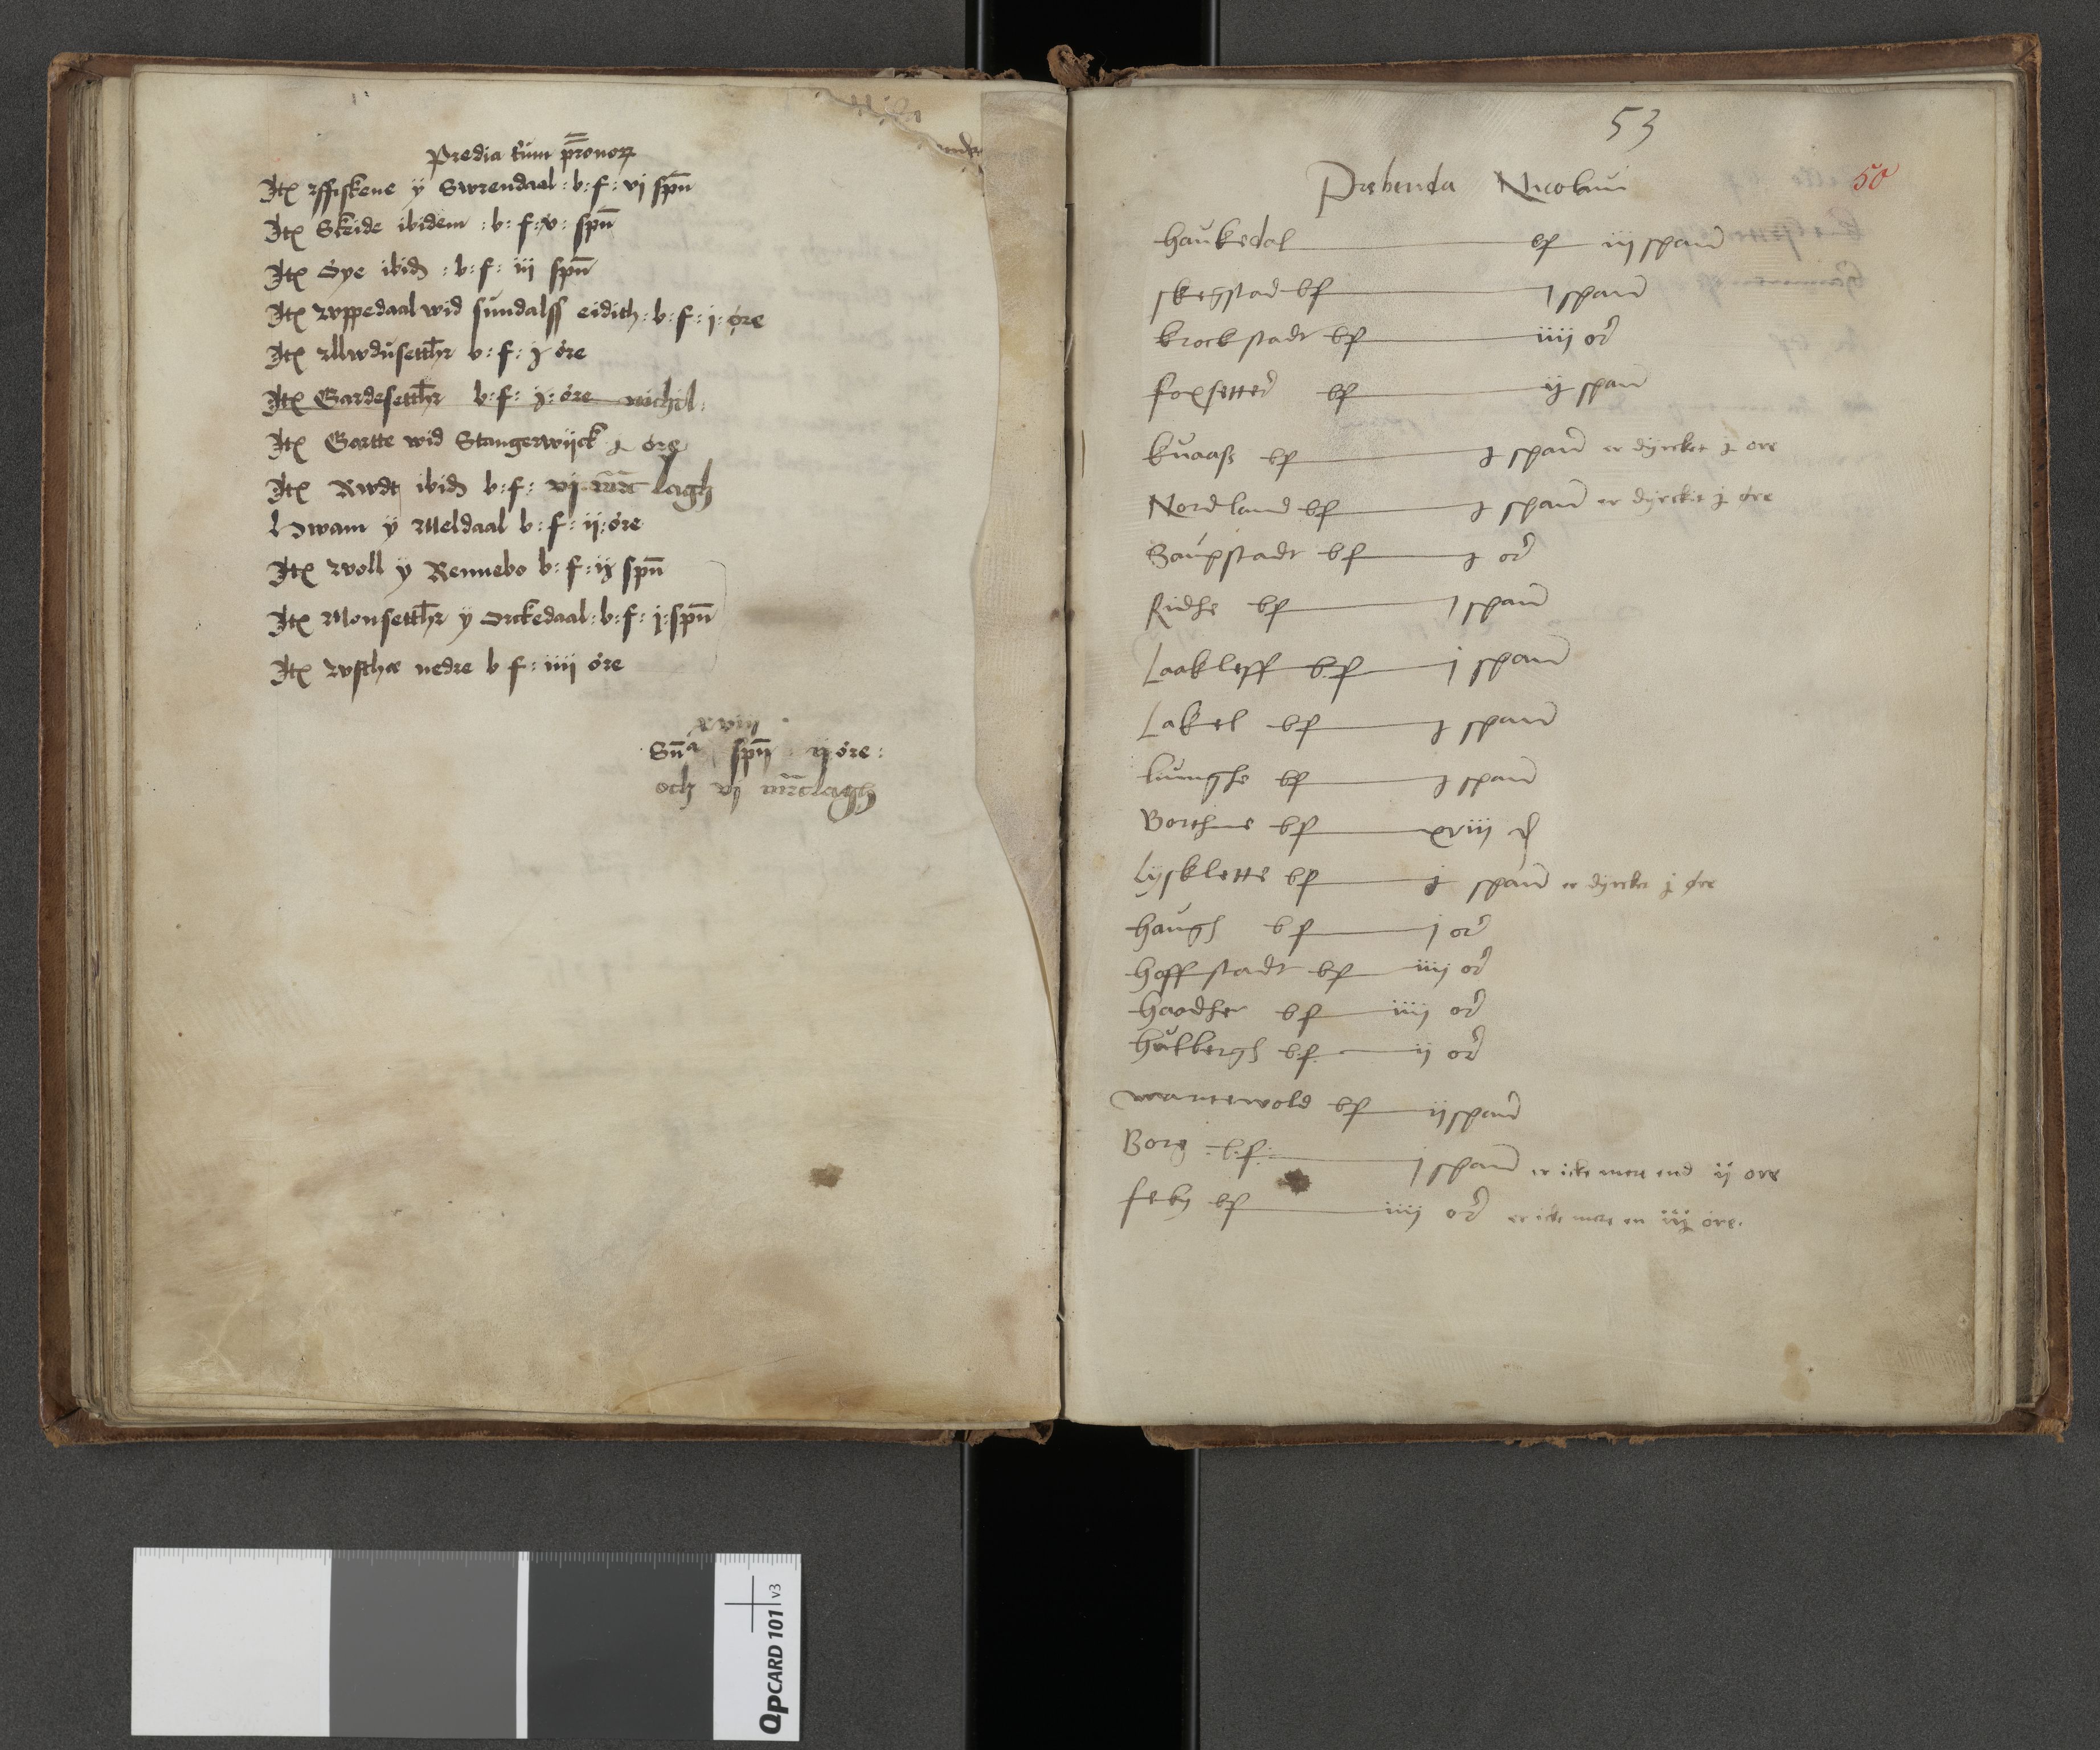 Predia trium pr̄onorꝝ
Itꝭ Effiskene ÿ Swrendaal : b : f : vi spn̄
Itꝭ Skeide ibidem : b : f : v : spn̄
Itꝭ Öye ibid : b : f : iij spn̄
Itꝭ Wppedaal wid sundalss eidith : b : f : j : øre
Itꝭ Allwdusetthr b : f : j øre
Itꝭ Gardesetthr b : f : j : øre nichil :
Itꝭ Gartte wid Stangerwijck j øre
Itꝭ Rwdt ibid b : f : vj mr̄c lagh
Hwam ÿ Meldaal b : f : ij : øre
Itꝭ Woll ÿ Rennebo b : f : ij spn̄
Itꝭ Monsetthr ÿ Orckedaal : b : f : j : spn̄
Itꝭ Wsthæ nedre b f : iiij øre
xviij
Sn̄a spn̄ ij øre :
och vj mr̄clagh
53
50
Prebenda Nicolaui
haukedal bf iij spand
skegstad bf j spand
krockstadt bf iiij or
foxsetter bf ij spand
kuaass bf j spand er dyrcket j ore
Nordland bf j spand er dyrckit j øre
Gaupstadt bf j or
Ridhe bf j spand
Laakleff bf j spand
Lakel bf j spand
liunghe bf j spand
Borthne bf xviij d
Lysklette bf j spand er dyrcket j øre
haugh bf j or
hoffstadt bf iiij or
haadher bf iiij or
hulbergh b.f. ij or
warterwold bf ij spand
Borg : b : f : j spand er icke mere end ij ore
feby bf iiij or er icke mere en iij øre.
QPCARD 101 v3